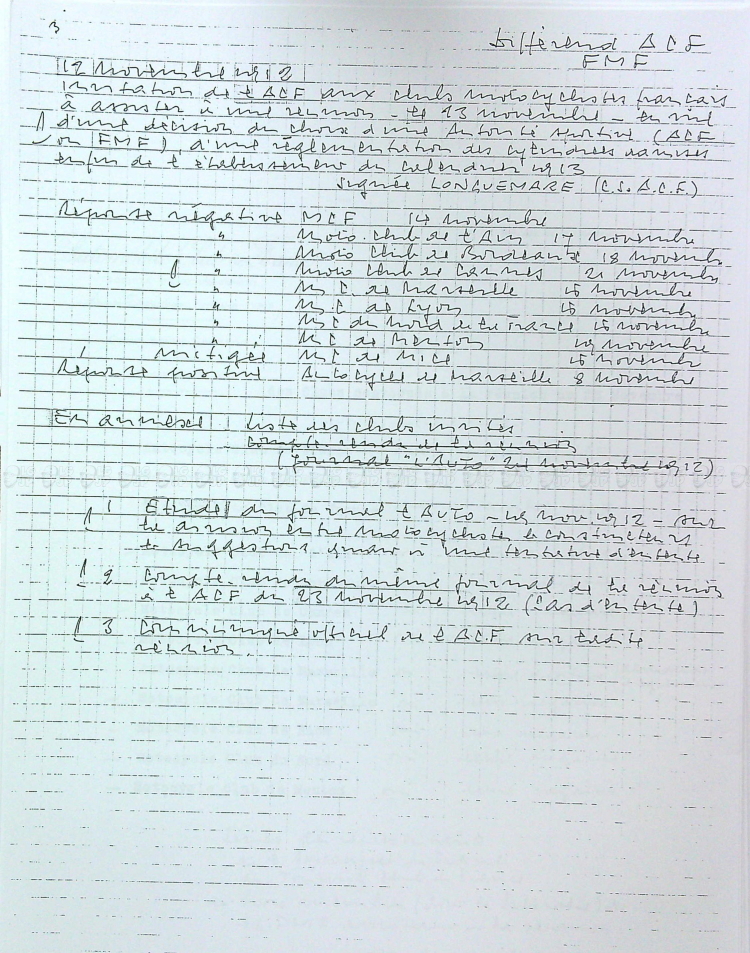 3
Différend ACF
FMF
12 Novembre 1912
Invitation de l'ACF aux clubs motocyclistes français
à assister à une réunion - le 23 novembre - en vue
d'une décision du choix d'une Autorité sportive (ACF
ou FMF), d'une règlementation des cylindrées admises
enfin de l'établissement du calendrier 1913
signée LONGUEMARE (C.S. A.C.F.)
Réponse négative MCF 14 novembre
" Moto. club de l'Ain 17 novembre
" Moto club de Bordeaux 18 novembre
" Moto club de Cannes 21 novembre
" M.C. de Marseille 15 novembre
" M.C de Lyon 15 novembre
" M.C du Nord de la France 15 novembre
" M.C de Menton 19 novembre
" mitigée M.C de Nice 15 novembre
Réponse positive Autocycle de Marseille 8 novembre
En annexe : liste des clubs invités
- compte-rendu de la réunion
(journal "L'Auto" 24 novembre 1912)
1 Etude du journal l'AUTO - 19 nov. 1912 - sur
la scission entre motocyclistes & constructeurs
& suggestions quant à une tentative d'entente
2 Compte-rendu du même journal de la réunion
à l'ACF du 23 Novembre 1912 (Pas d'entente)
3 Communiqué officiel de l'ACF sur ladite
réunion.